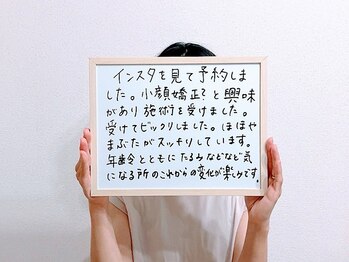 インスタを見て予約しま
した。小顔矯正?と興味
があり施術を受けました。
受けてビックリしました。ほほや
まぶたがスッキリしています。
年齢とともにたるみなどなど気
になる所のこれからの変化が楽しみです。